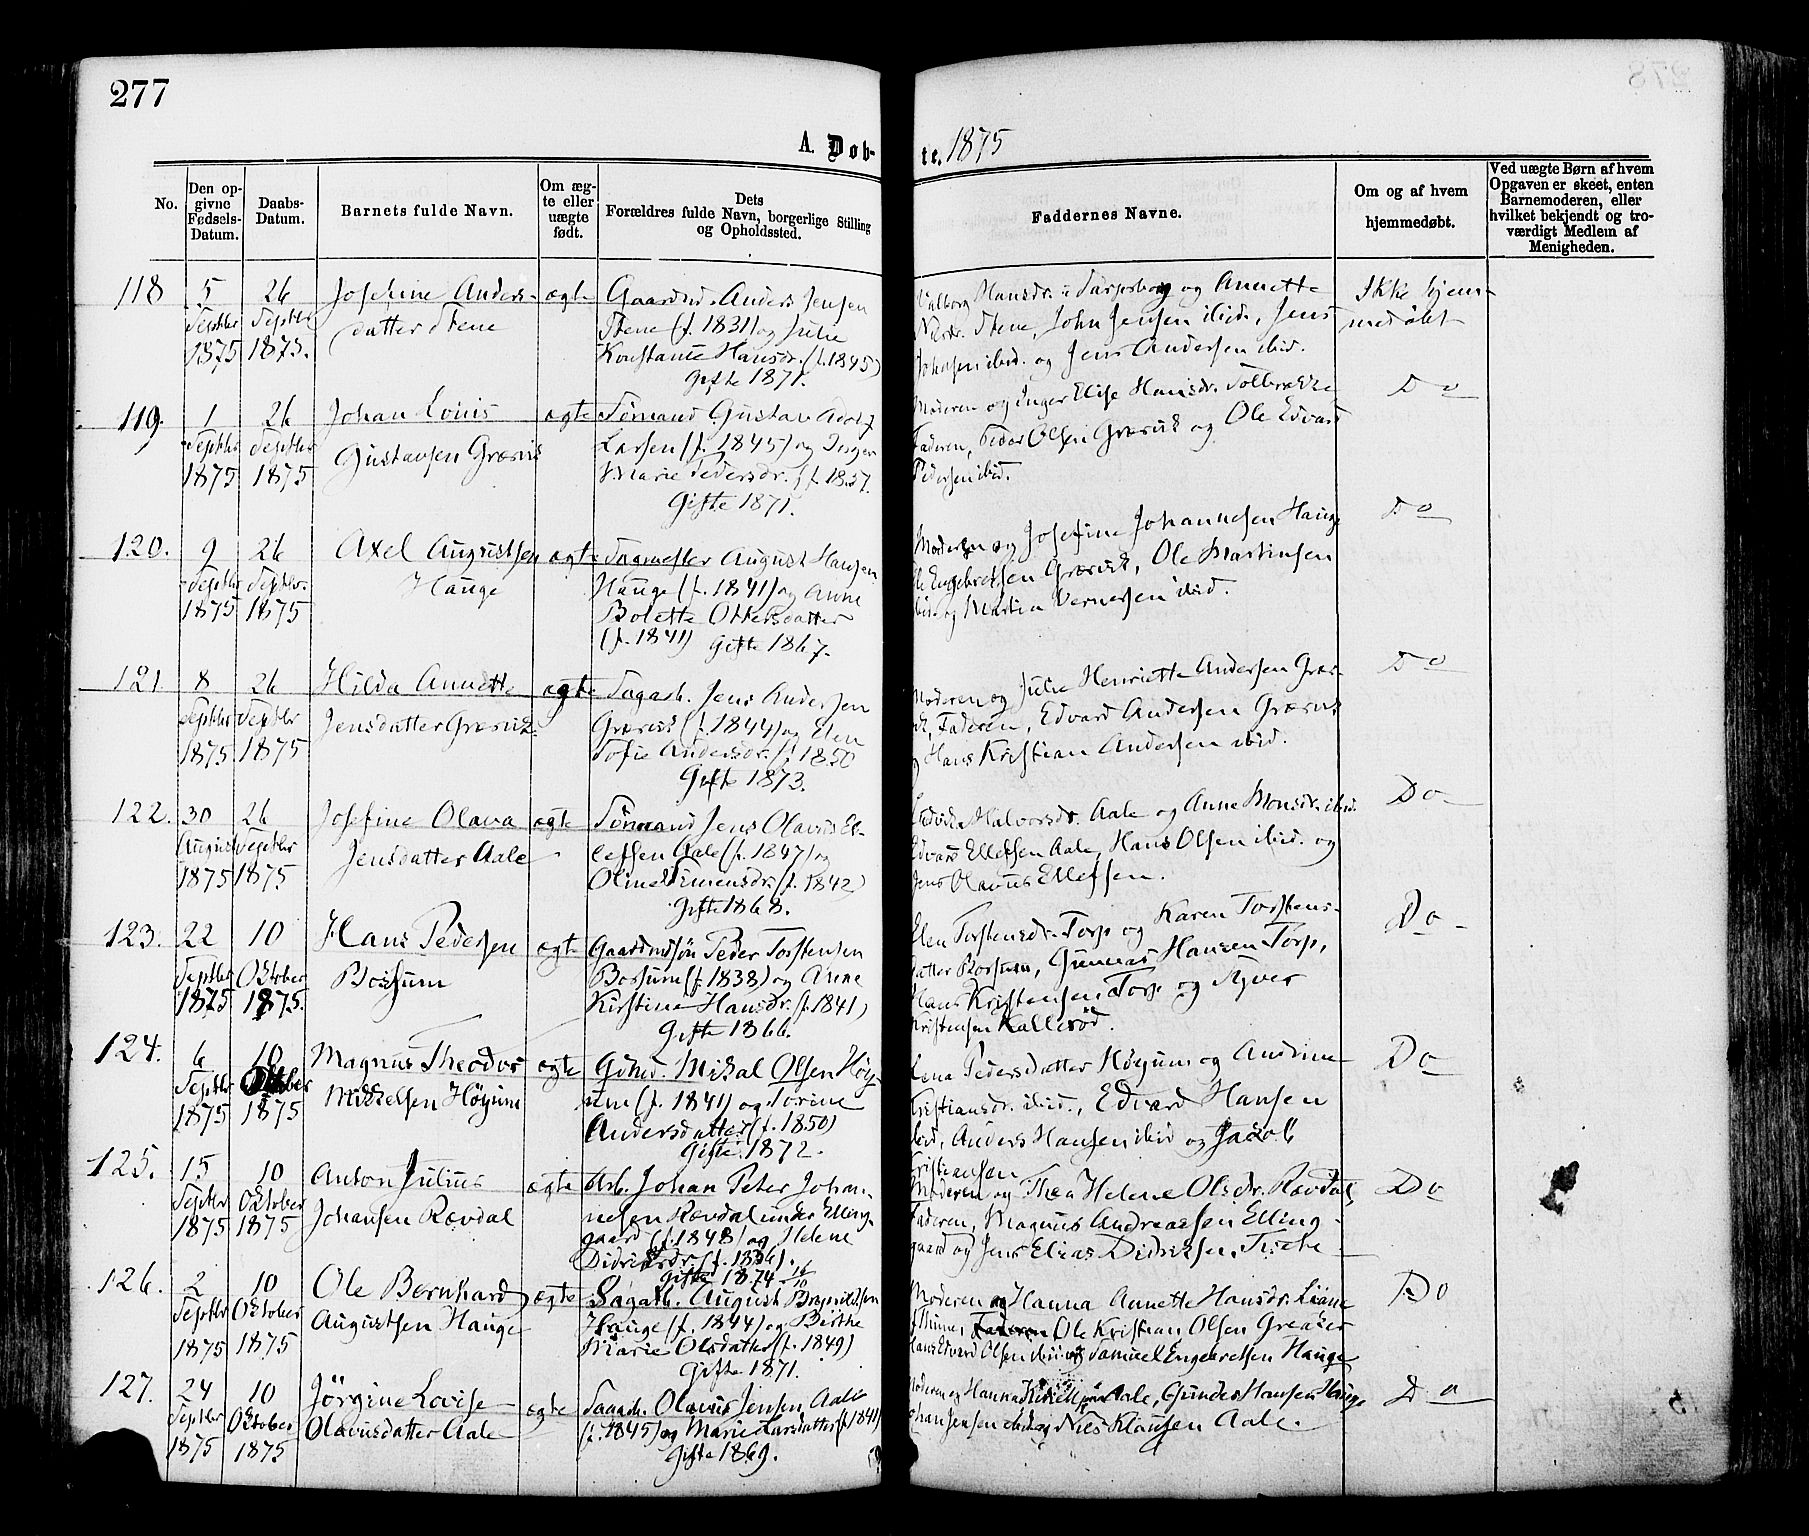 277
A. Døb-
te. 1875
No.
Den op-
givne
Fødsels-
Datum.
Daabs-
Datum.
Barnets fulde Navn.
Om æg-
te eller
uægte
født.
Dets
Forældres fulde Navn, borgerlige Stilling
og Opholdssted.
Faddernes Navne.
Om og af hvem
hjemmedøbt.
Ved uægte Børn af hvem
Opgaven er skeet, enten
Barnemoderen, eller
hvilket bekjendt og tro-
værdigt Medlem af
Menigheden.
118
5
Septbr
1875
26
Septbr
1875.
Josefine Anders-
datter Stene
ægte
Gaardbr. Anders Jensen
Stene (f. 1831) og Julie
Konstance Hansdr. (f. 1845)
Gifte 1871.
Valborg Hansdr. i Sarpsborg og Annette
Stene, John Jensen ibid., Jens
Johnsen ibid. og Jens Andersen ibid.
Ikke hjem-
medøbt
119.
1
Septbr
1875
26
Septbr
1875
Johan Louis
Gustavsen Græsvig
ægte
Sømand Gustav Adolf
Larsen (f. 1845) og Inger
Marie Pedersdr. (f. 1857.
Gifte 1871.
Moderen og Inger Elise Hansdr. Tolbrække
Faderen, Peder Olsen Græsvik og Ole Edvard
Pedersen ibid.
Do
120.
9
Septbr
1875
26
Septbr.
1875
Axel Augustsen
Hauge
ægte
Sagmester August Hansen
Hauge (f. 1841) og Anne
Bolette Ottersdatter
(f. 1841) Gifte 1867.
Moderen og Josefine Johannesen Hauge
Ole Engebretsen Græsvik, Ole Martinsen
ibid. og Martin Vernersen ibid.
Do
121
8
Septbr
1875
26
Septbr
1875
Hilda Annette
Jensdatter Græsvik
ægte
Sagarb. Jens Andersen
Græsvik (f. 1844) og Elen
Sofie Andersdr. (f. 1850
Gifte 1873.
Moderen og Julie Henriette Andersen Græs-
vik, Faderen, Edvard Andersen Græsvik
og Hans Kristian Andersen ibid.
Do
122.
30
August
1875
26
Septbr
1875
Josefine Olava
Jensdatter Aale
ægte
Sømand Jens Olavus El-
lefsen Aale (f. 1847) og
Oline Simensdr. (f. 1842)
Gifte 1868.
Halvorsdr. Aale og Anne Monsdr. ibid.
Edvard Ellefsen Aale, Hans Olsen ibid. og
Jens Olavus Ellefsen.
Do
123.
22
Septbr
1875
10
Oktober
1875.
Hans Pedersen
Bossum
ægte
Gaardmdsøn Peder Torstensen
Bossum (f. 1838) og Anne
Kirstine Hansdr. (f. 1841)
Gifte 1866.
Elen Torstensdr. Torp og Karen Torstens-
datter Bossum, Gunnar Hansen Torp,
Hans Kristensen Torp og Syver
Kristensen Kallerød.
Do
124.
6
Septbr
1875
10
Oktober
1875
Magnus Theodor
Mikkelsen Höyum
ægte
Gdbd. Mikal Olsen Höy-
um (f. 1841) og Torine
Andersdatter (f. 1850)
Gifte 1872.
Lena Pedersdatter Höyum og Andrine
Kristiansdr. ibid., Edvard Hansen
ibid, Anders Hansen ibid og Jacob
Kristiansen
Do
125.
15
Septbr
1875
10
Oktober
1875
Anton Julius
Johansen Rævdal
ægte
Arb. Johan Peter Johan-
nesen Rævdal under Elling-
gaard (f. 1848) og Helene
Didriksdr. (f. 1836).
Gifte 1874 16/10
Moderen og Thea Helene Olsdr. Rævdal,
Faderen, Magnus Andreassen Elling-
gaard og Jens Elias Didriksen
Do
126.
2
Septbr
1875
10
Oktober
1875
Ole Bernhard
Augustsen Hauge
ægte
Sagarb. August Brynildsen
Hauge (f. 1844) og Birthe
Marie Olsdatter (f. 1849)
Gifte 1871.
Moderen og Hanna Annette Hansdr. Liane
Ole Kristian Olsen Greaker
Hans Edvard Olsen ibid og Samuel Engebretsen Hauge
Do
127.
24
Septbr
1875
10
Oktober
1875
Jörgine Lovise
Olavusdatter Aale
ægte
Saugarb. Olavus Jensen Aale
(f. 1845) og Marie Larsdatter (f. 1841)
Gifte 1869.
Moderen og Hanna Aale, Gunder Hansen Hauge
Johan Jensen ibid og Nils Klausen Aale.
Do